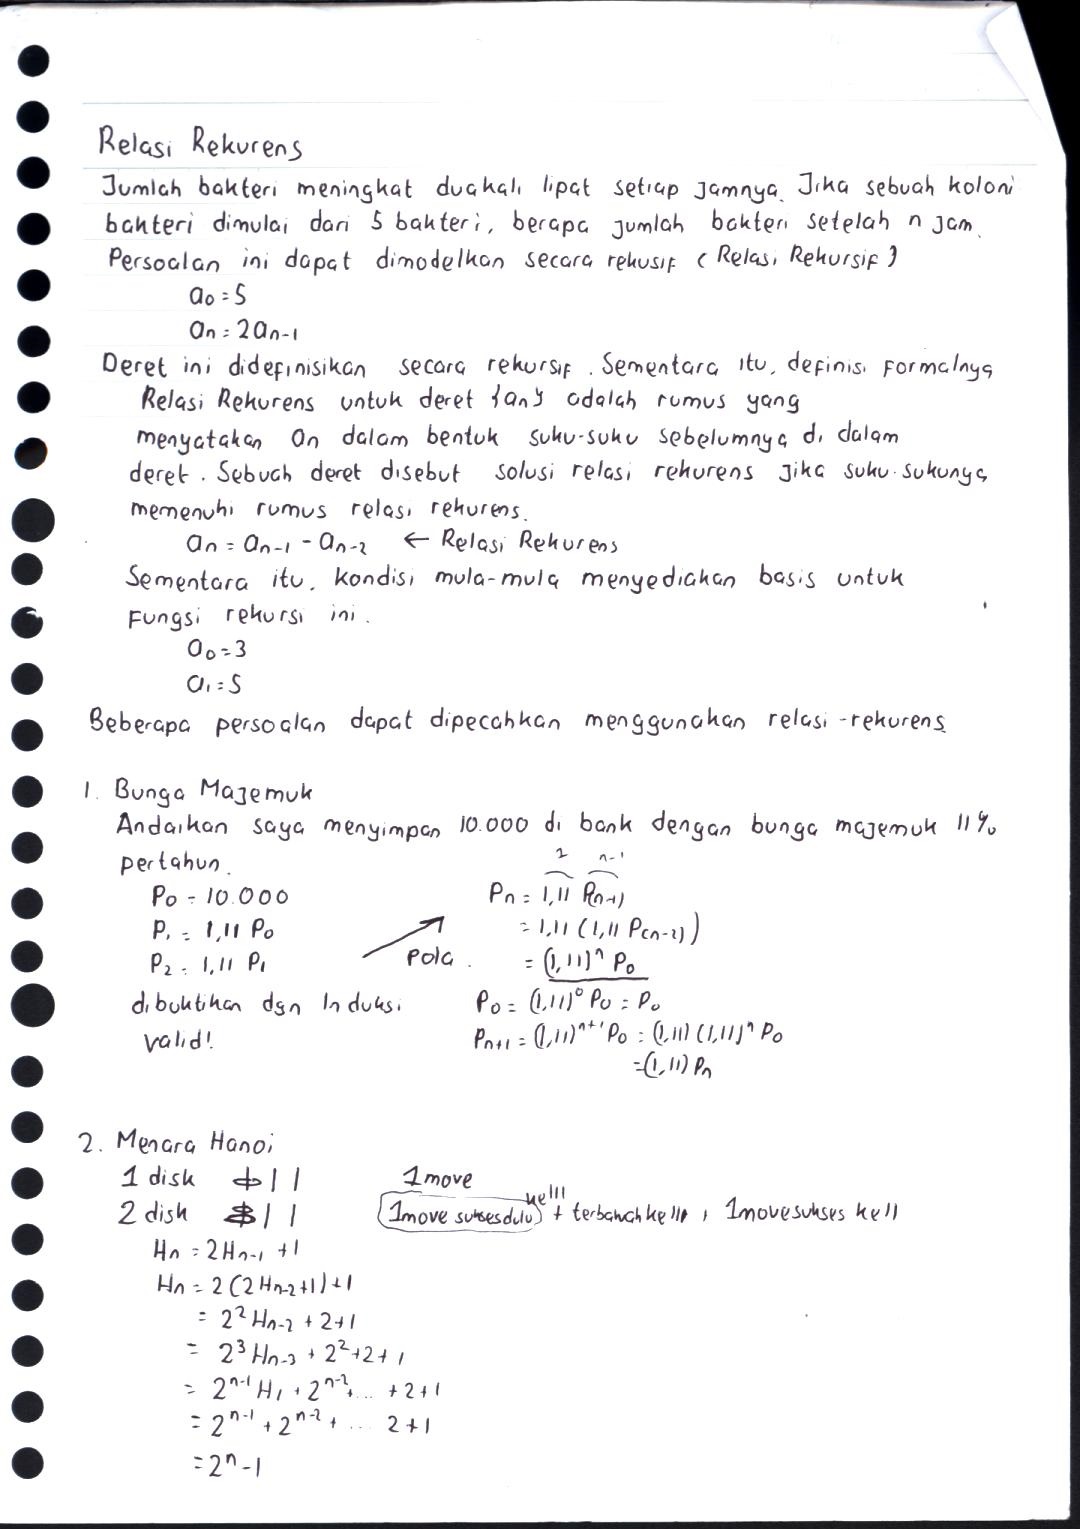 Relasi Rekurens
Jumlah bakteri meningkat duakali lipat setiap jamnya. Jika sebuah koloni
bakteri dimulai dari 5 bakteri, berapa jumlah bakteri setelah n jam.
Persoalan ini dapat dimodelkan secara rekusif (Relasi Rekursif)
a₀ = 5
aₙ = 2aₙ₋₁
Deret ini didefinisikan secara rekursif. Sementara itu, definisi formalnya
Relasi Rekurens untuk deret {an} adalah rumus yang
menyatakan an dalam bentuk suku-suku sebelumnya di dalam
deret. Sebuah deret disebut solusi relasi rekurens jika suku-sukunya
memenuhi rumus relasi rekurens.
aₙ = aₙ₋₁ - aₙ₋₂ ← Relasi Rekurens
Sementara itu, kondisi mula-mula menyediakan basis untuk
fungsi rekursi ini.
a₀ = 3
a₁ = 5
Beberapa persoalan dapat dipecahkan menggunakan relasi-rekurens
1. Bunga Majemuk
Andaikan saya menyimpan 10.000 di bank dengan bunga majemuk 11%
pertahun.
P₀ = 10.000
P₁ = 1,11 P₀
P₂ = 1,11 P₁
dibuktikan dgn Induksi
valid!
pola.
1 n-1
Pₙ = 1,11 P(n-1)
= 1,11 (1,11 P(n-2))
= (1,11)ⁿ P₀
P₀ = (1,11)⁰ P₀ = P₀
Pₙ₊₁ = (1,11)ⁿ⁺¹ P₀ = (1,11) (1,11)ⁿ P₀
= (1,11) Pₙ
2. Menara Hanoi
1 disk 1 move
2 disk 1move sukses dulu ke III + terbawah ke II, 1move sukses ke II
Hₙ = 2Hₙ₋₁ + 1
Hₙ = 2(2Hₙ₋₂+1)+1
= 2² Hₙ₋₂ + 2+1
= 2³ Hₙ₋₃ + 2²+2+1
= 2ⁿ⁻¹ H₁ + 2ⁿ⁻² + ... + 2+1
= 2ⁿ⁻¹ + 2ⁿ⁻² + ... 2+1
= 2ⁿ - 1